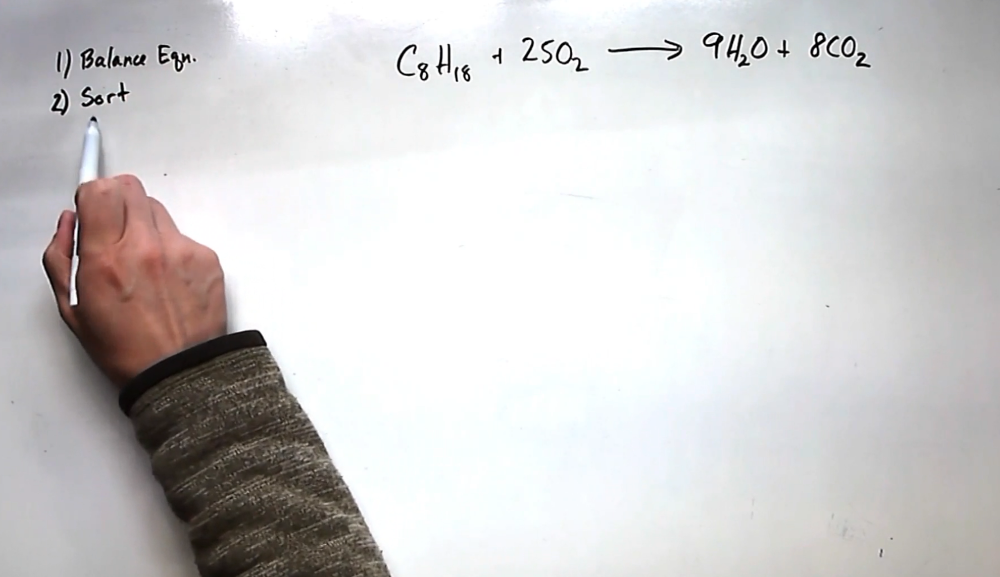 1) Balance Eqn.
2) Sort
C₈H₁₈ + 25O₂ ⟶ 9H₂O + 8CO₂